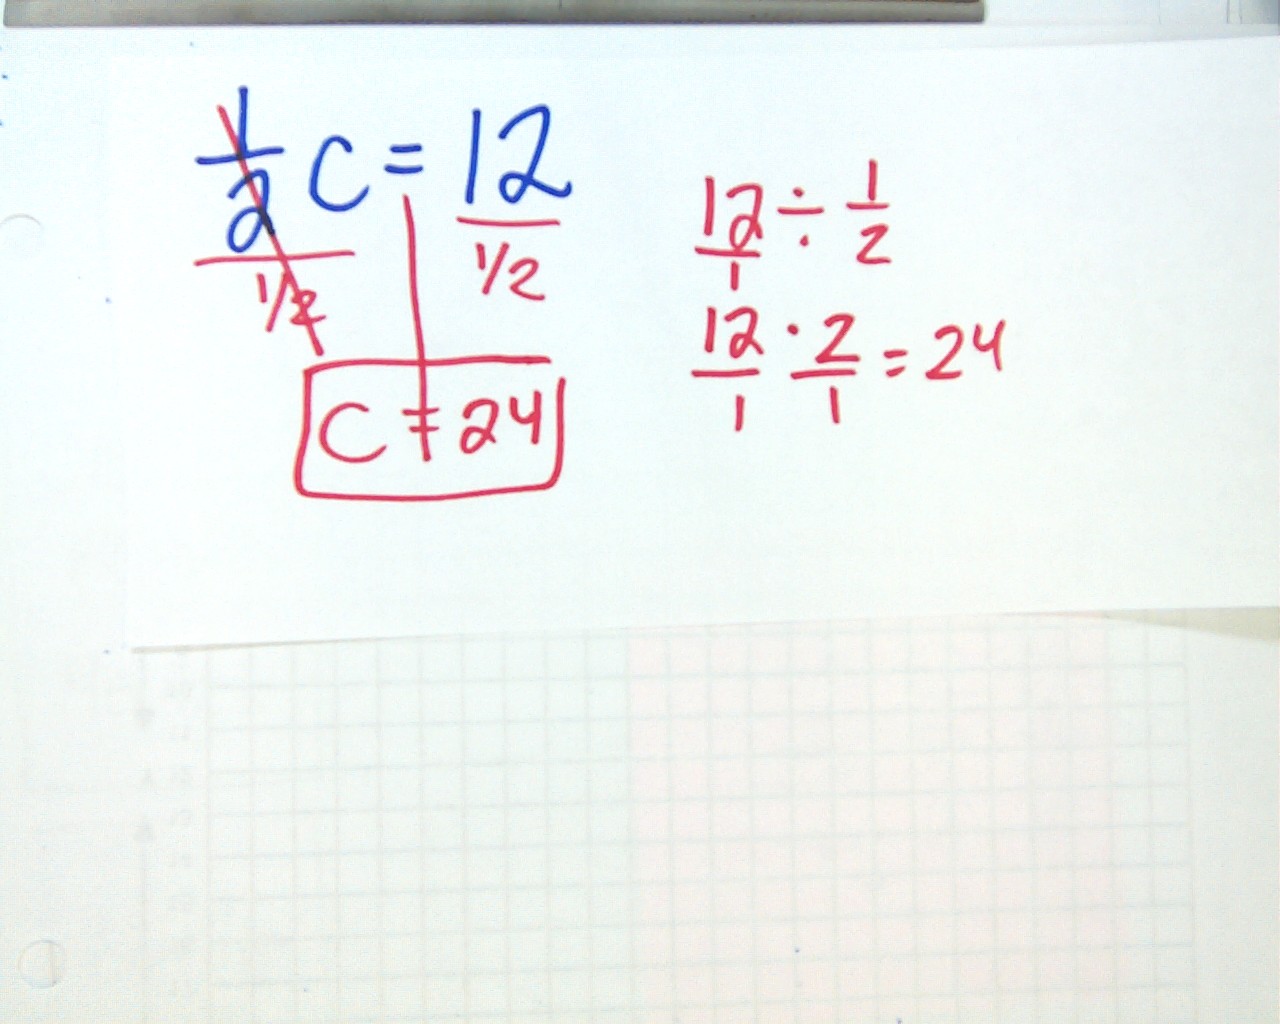 1/2 C = 12
1/2 1/2
C = 24
12/1 ÷ 1/2
12/1 · 2/1 = 24